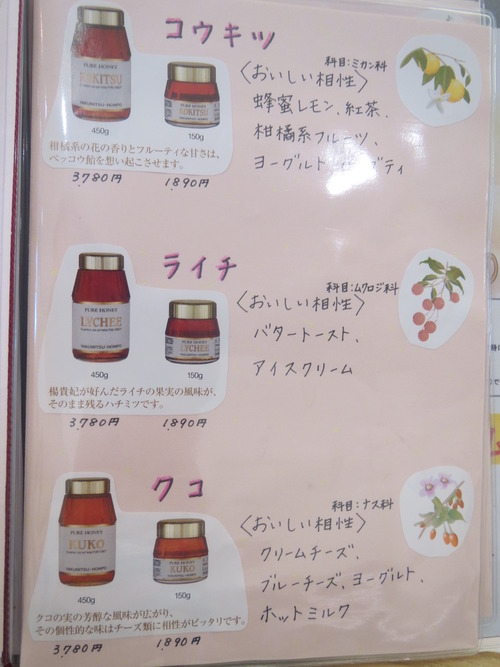 コウキツ
科目:ミカン科
PURE HONEY
KOKITSU
SAKUMITSU-HONPO
PURE HONEY
KOKITSU
450g
150g
〈おいしい相性〉
蜂蜜レモン、紅茶、
柑橘系フルーツ、
ヨーグルト
柑橘系の花の香りとフルーティな甘さは、
ベッコウ飴を想い起こさせます。
3,780円
1,890円
ライチ
科目:ムクロジ科
PURE HONEY
LYCHEE
PURE HONEY
LYCHEE
450g
150g
〈おいしい相性〉
バタートースト、
アイスクリーム
楊貴妃が好んだライチの果実の風味が、
そのまま残るハチミツです。
3,780円
1,890円
クコ
科目:ナス科
PURE HONEY
KUKO
PURE HONEY
KUKO
450g
150g
〈おいしい相性〉
クリームチーズ、
ブルーチーズ、ヨーグルト、
ホットミルク
クコの実の芳醇な風味が広がり、
その個性的な味はチーズ類に相性がピッタリです。
3,780円
1,890円